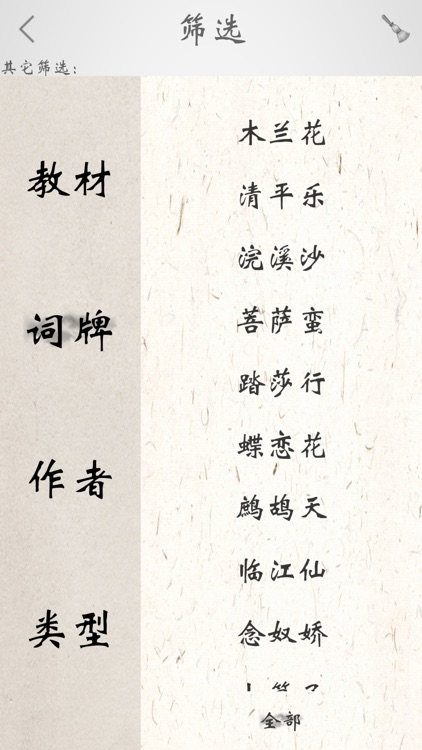 筛选
其它筛选:
教材
词牌
作者
类型
木兰花
清平乐
浣溪沙
菩萨蛮
踏莎行
蝶恋花
鹧鸪天
临江仙
念奴娇
全部